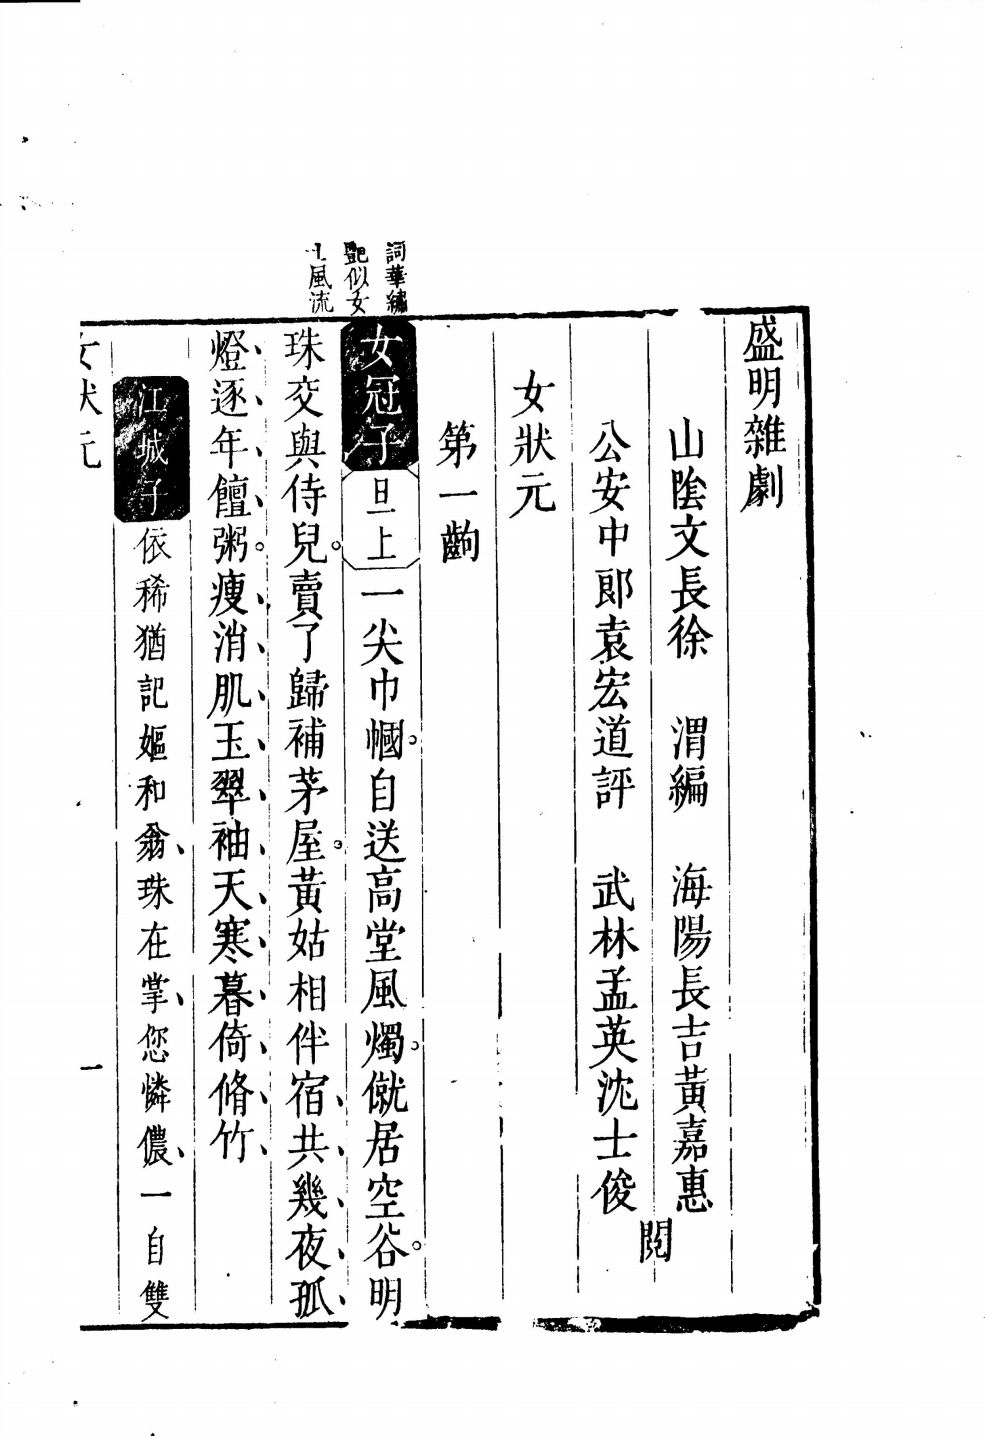 盛明雜劇
山陰文長徐　渭編　海陽長吉黃嘉惠
公安中郎袁宏道評　武林孟英沈士俊
閱
女狀元
第一齣
詞華繡
豔似女
風流
女冠子旦上一尖巾幗。自送高堂風燭。僦居空谷。明
珠交與侍兒。賣了歸補茅屋。黃姑相伴宿共幾夜孤
燈逐年饘粥。瘦消肌玉翠袖天寒暮倚脩竹
江城子依稀猶記嫗和翁珠在掌您憐儂一自雙
女狀元
一